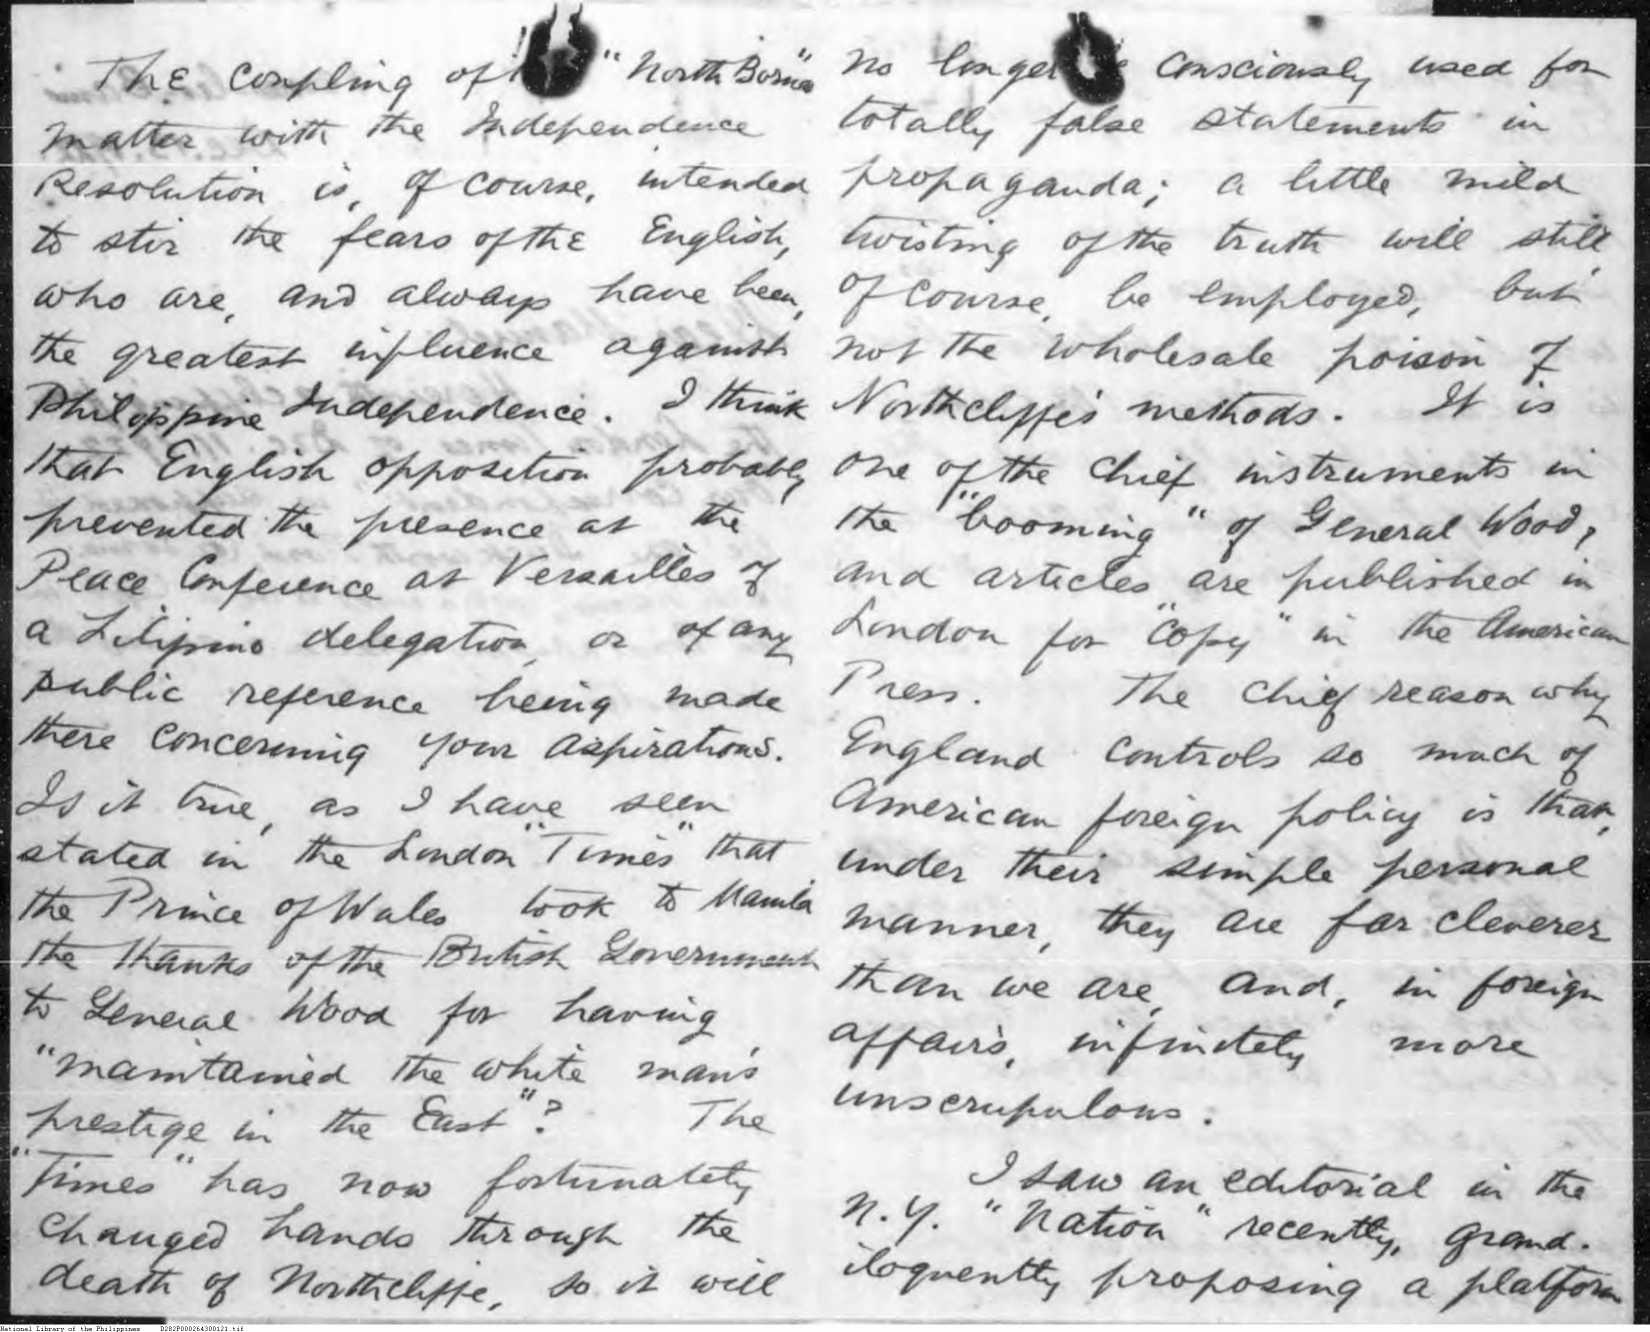 The coupling of "North Borneo"
matter with the Independence
Resolution is, of course, intended
to stir the fears of the English,
who are, and always have been,
the greatest influence against
Philippine Independence. I think
that English opposition probably
prevented the presence at the
Peace Conference at Versailles of
a Filipino delegation, or of any
public reference being made
there concerning your aspirations.
Is it true, as I have seen
stated in the London "Times" that
the Prince of Wales took to Manila
the thanks of the British Government
to General Wood for having
"maintained the white man's
prestige in the East"? The
"Times" has now fortunately
changed hands through the
death of Northcliffe, so it will
no longer consciously used for
totally false statements in
propaganda; a little mild
twisting of the truth will still,
of course, be employed, but
not the wholesale poison of
Northcliffe's methods. It is
one of the chief instruments in
the "booming" of General Wood,
and articles are published in
London for "copy" in the American
Press. The chief reason why
England controls so much of
American foreign policy is that,
under their simple personal
manner, they are far cleverer
than we are, and, in foreign
affairs, infinitely more
unscrupulous.
I saw an editorial in the
N.Y. "Nation" recently, grand-
iloquently proposing a platform
National Library of the Philippines D282P000264300121.tif